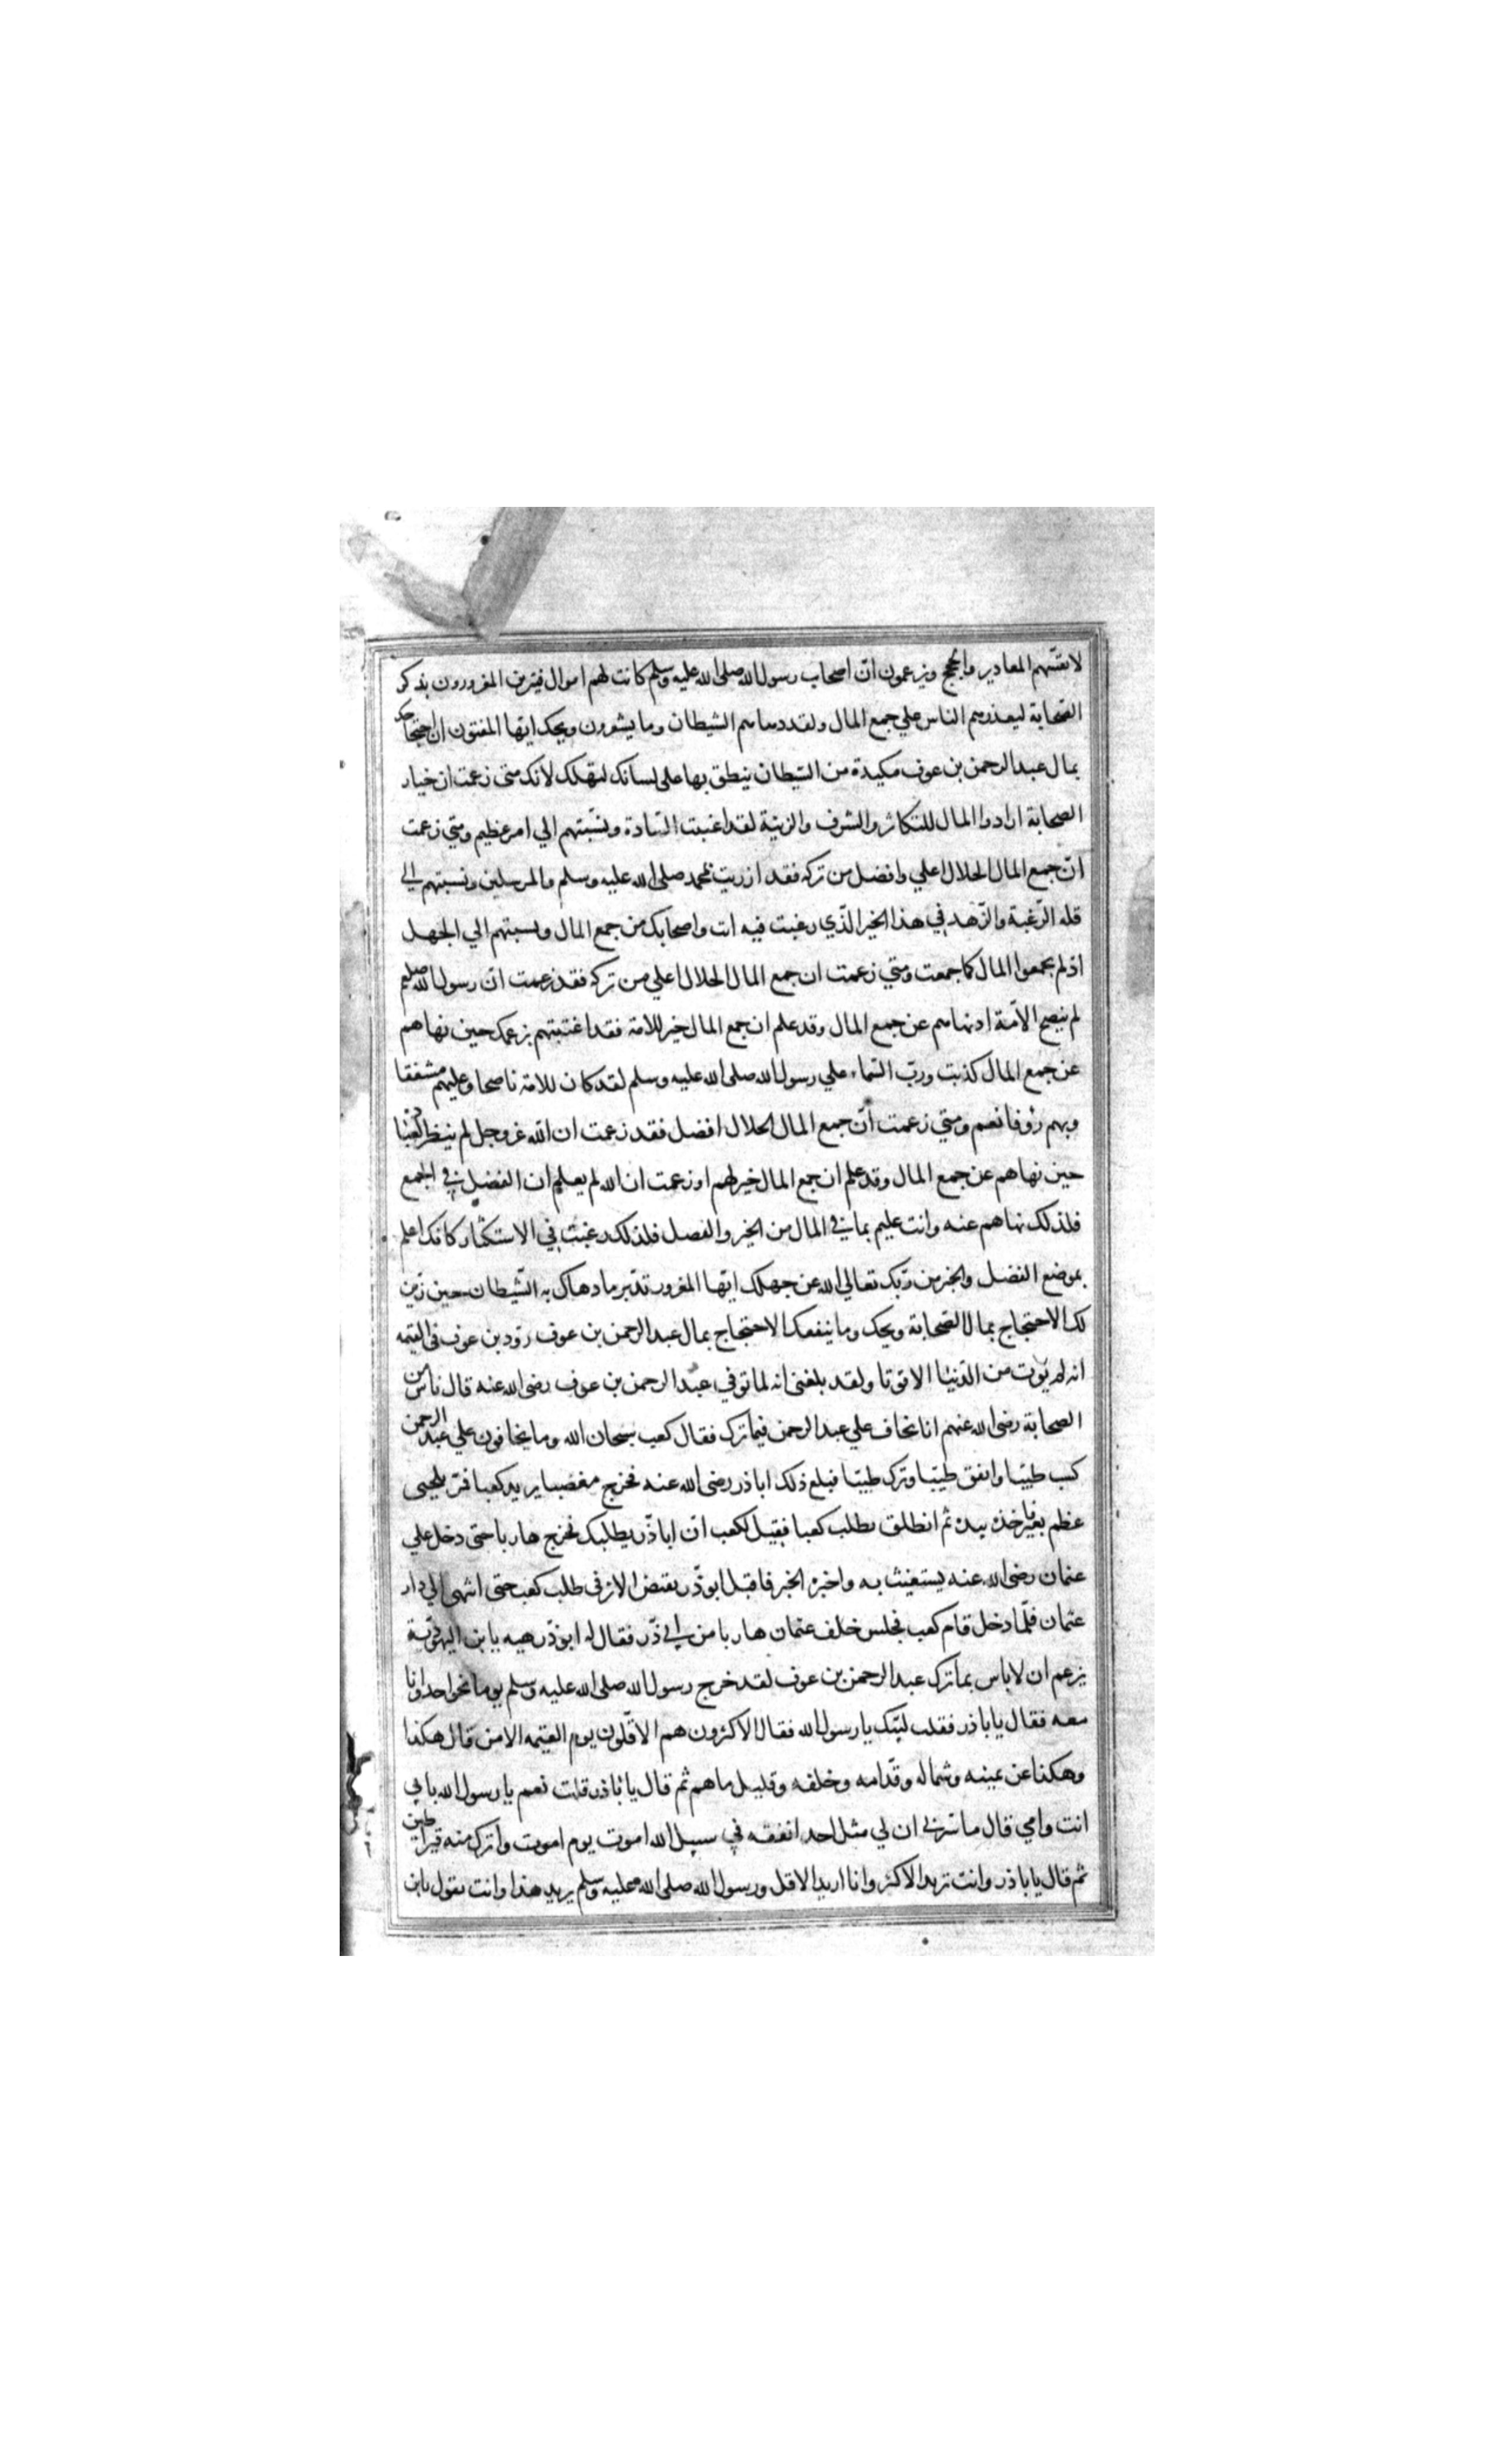 لانفسهم المعاذير والحجج ويزعمون ان اصحاب رسول الله صلى الله عليه وسلم كانت لهم اموال فيتزين المغرورون بذكر
الصحابة ليعذرهم الناس علي جمع المال ولقد دهاهم الشيطان وما يشعرون ويحك ايها المفتون ان احتجاجك
بمال عبد الرحمن بن عوف مكيدة من الشيطان ينطق بها على لسانك لتهلك لانك متى زعمت ان خيار
الصحابة ارادوا المال للتكاثر والشرف والزينة لقد اغتبت السادة ونسبتهم الي امر عظيم ومتي زعمت
ان جمع المال الحلال اعلي وافضل من تركه فقد ازريت بمحمد صلى الله عليه وسلم والمرسلين ونسبتهم الى
قله الرغبة والزهد في هذا الخير الذي رغبت فيه انت واصحابك من جمع المال ونسبتهم الي الجهل
اذ لم يجمعوا المال كما جمعت ومتي زعمت ان جمع المال الحلال اعلي من تركه فقد زعمت ان رسول الله صلعم
لم ينصح الامة اذ نهاهم عن جمع المال وقد علم ان جمع المال خير للامة فقد اغتبتهم بزعمك حين نهاهم
عن جمع المال كذبت ورب السماء علي رسول الله صلى الله عليه وسلم لقد كان للامة ناصحا وعليهم مشفقا
وبهم رؤفا نعم ومتي زعمت ان جمع المال الحلال افضل فقد زعمت ان الله عز وجل لم ينظر لعباده
حين نهاهم عن جمع المال وقد علم ان جمع المال خير لهم او زعمت ان الله لم يعلم ان الفضل في الجمع
فلذلك نهاهم عنه وانت عليم بما في المال من الخير والفصل فلذلك رغبت في الاستكثار كانك اعلم
بموضع الفضل والخير من ربك تعالي الله عن جهلك ايها المغرور تدبر ما دهاك به الشيطان حين زين
لك الاحتجاج بمال الصحابة ويحك وما ينفعك الاحتجاج بمال عبد الرحمن بن عوف وود بن عوف فى القيمه
انه لم يؤت من الدنيا الا قوتا ولقد بلغنى انه لما توفي عبد الرحمن بن عوف رضى الله عنه قال ناس من
الصحابة رضى الله عنهم انا نخاف علي عبد الرحمن فيما ترك فقال كعب سبحان الله وما يخافون علي عبد الرحمن
كسب طيبا وانفق طيبا وترك طيبا فبلغ ذلك اباذر رضى الله عنه فخرج مغضبا يريد كعبا فمر بلحيى
عظم بعير فاخذه بيده ثم انطلق يطلب كعبا فقيل لكعب ان اباذر يطلبك فخرج هاربا حتى دخل علي
عثمان رضى الله عنه يستغيث به واخبره الخبر فاقبل ابوذر يقتص الاثر فى طلب كعب حتى انتهى الي دار
عثمان فلما دخل قام كعب فجلس خلف عثمان هاربا من ابي ذر فقال له ابوذر هيه يا بن اليهودية
يزعم ان لا باس بما ترك عبد الرحمن بن عوف لقد خرج رسول الله صلى الله عليه وسلم يوما نحو احد وانا
معه فقال يا باذر فقلت لبيك يا رسول الله فقال الاكثرون هم الاقلون يوم القيمه الا من قال هكذا
وهكذا عن يمينه وشماله وقدامه وخلفه وقليل ما هم ثم قال يا باذر قلت نعم يا رسول الله بابي
انت وامي قال ما سرني ان لي مثل احد انفقه في سبيل الله اموت يوم اموت واترك منه قيراطين
ثم قال يا باذر وانت تريد الاكثر وانا اريد الاقل ورسول الله صلى الله عليه وسلم يريد هذا وانت تقول يا بن